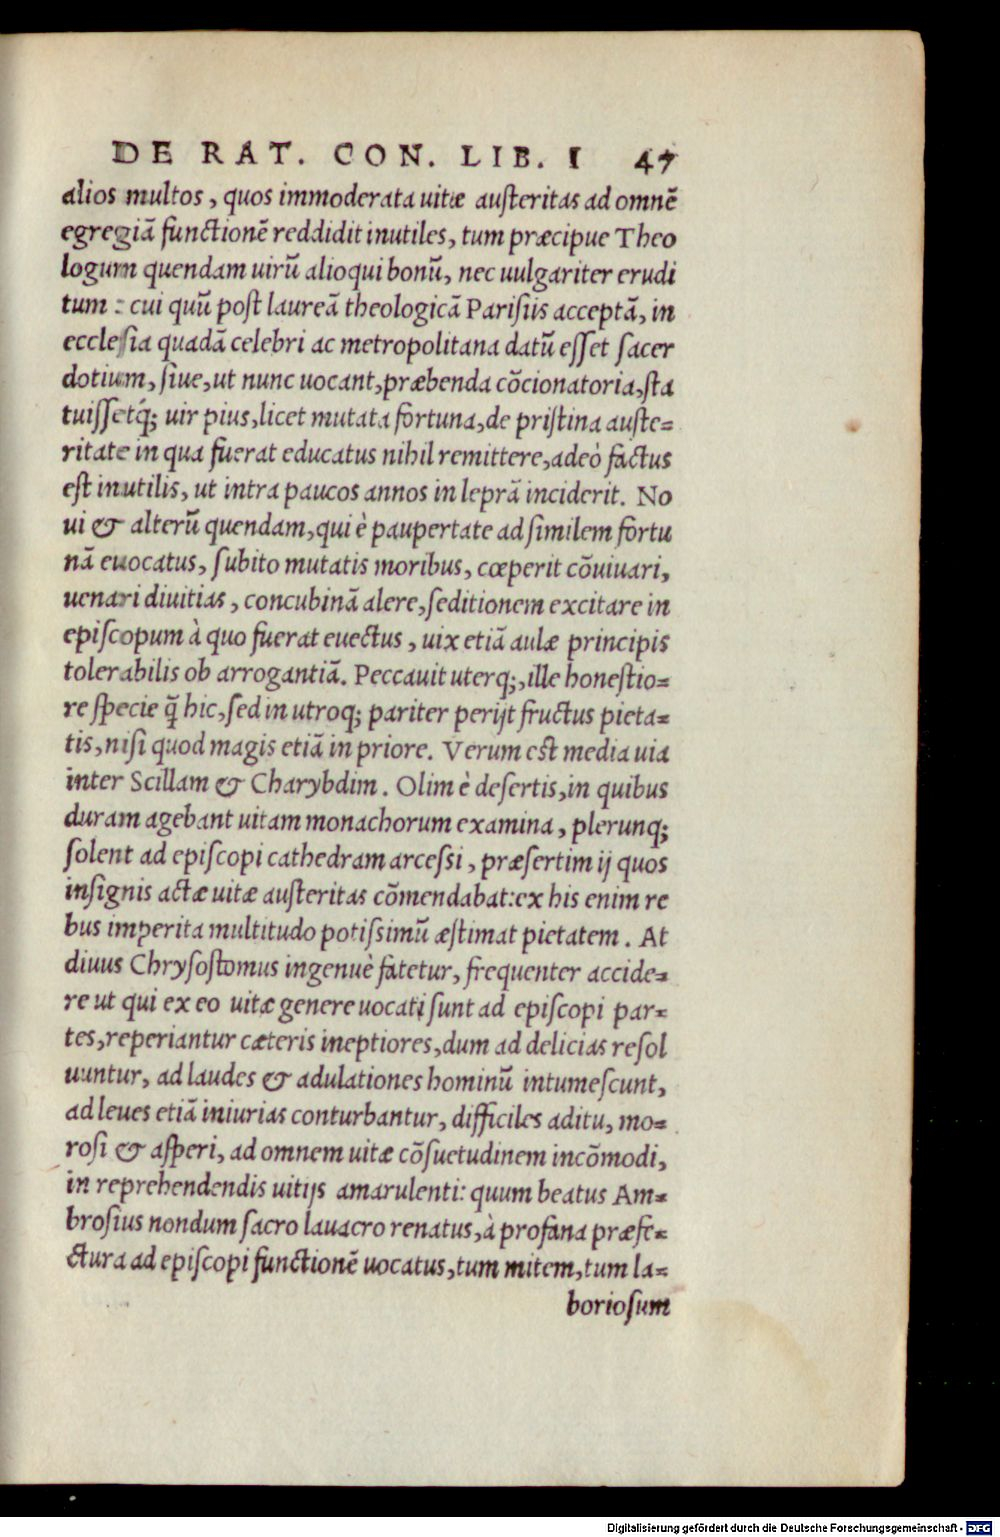 DE RAT. CON. LIB. I 47
alios multos, quos immoderata uitæ austeritas ad omnẽ
egregiã functionẽ reddidit inutiles, tum præcipue Theo
logum quendam uirũ alioqui bonũ, nec uulgariter erudi
tum: cui quũ post laureã theologicã Parisiis acceptã, in
ecclesia quadã celebri ac metropolitana datũ esset sacer
dotium, siue, ut nunc uocant, præbenda cõcionatoria, sta
tuissetq́; uir pius, licet mutata fortuna, de pristina auste=
ritate in qua fuerat educatus nihil remittere, adeò factus
est inutilis, ut intra paucos annos in leprã inciderit. No
ui & alterũ quendam, qui è paupertate ad similem fortu
nã euocatus, subito mutatis moribus, cœperit cõuiuari,
uenari diuitias, concubinã alere, seditionem excitare in
episcopum à quo fuerat euectus, uix etiã aulæ principis
tolerabilis ob arrogantiã. Peccauit uterq;, ille honestio=
re specie q̃ hic, sed in utroq; pariter perijt fructus pieta=
tis, nisi quod magis etiã in priore. Verum est media uia
inter Scillam & Charybdim. Olim è desertis, in quibus
duram agebant uitam monachorum examina, plerunq;
solent ad episcopi cathedram arcessi, præsertim ij quos
insignis actæ uitæ austeritas cõmendabat: ex his enim re
bus imperita multitudo potissimũ æstimat pietatem. At
diuus Chrysostomus ingenuè fatetur, frequenter accide=
re ut qui ex eo uitæ genere uocati sunt ad episcopi par=
tes, reperiantur cæteris ineptiores, dum ad delicias resol
uuntur, ad laudes & adulationes hominũ intumescunt,
ad leues etiã iniurias conturbantur, difficiles aditu, mo=
rosi & asperi, ad omnem uitæ cõsuetudinem incõmodi,
in reprehendendis uitijs amarulenti: quum beatus Am=
brosius nondum sacro lauacro renatus, à profana præfe=
ctura ad episcopi functionẽ uocatus, tum mitem, tum la=
boriosum
Digitalisierung gefördert durch die Deutsche Forschungsgemeinschaft - DFG